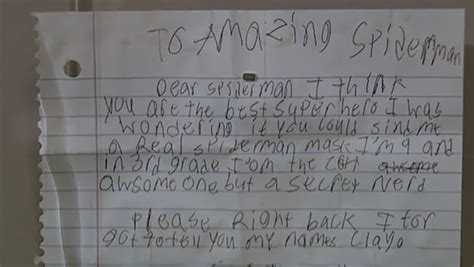 TO AMazing spiderman
Dear spiderman I think
you are the best superhero I was
wondering if you could sind me
a Real spiderman mask I'm 9 and
in 3rd grade I'om the
awsome one but a secret nerd
please Right back I for
got to tell you my names Clayo